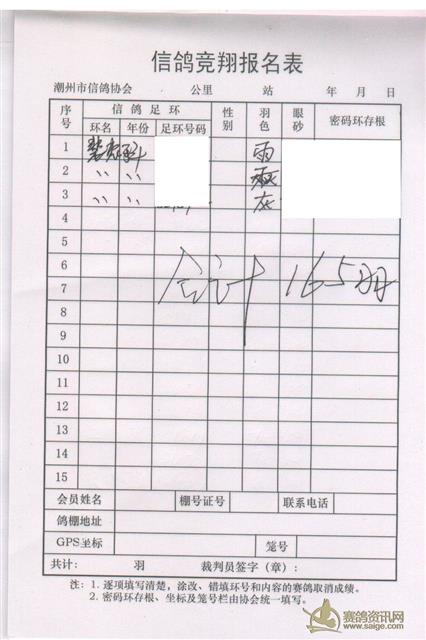 信鸽竞翔报名表
潮州市信鸽协会 公里 站 年 月 日
序号 信鸽足环 性别 羽色 眼砂 密码环存根
环名 年份 足环号码
1 雨
2
3 灰
4
5
6 合计 165羽
7
8
9
10
11
12
13
14
15
会员姓名 棚号证号 联系电话
鸽棚地址
GPS坐标 笼号
共计： 羽 裁判员签字（章）：
注：1. 逐项填写清楚，涂改、错填环号和内容的赛鸽取消成绩。
2. 密码环存根、坐标及笼号栏由协会统一填写。
赛鸽资讯网
www.saige.com